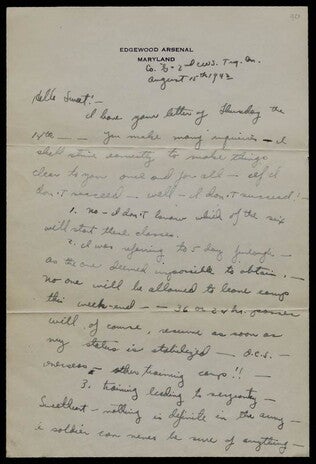 EDGEWOOD ARSENAL
MARYLAND
Co. - 2nd CWS. Trg. Bn.
August 15th 1942
Hello Sweet! -
I have your letter of Thursday the
- You make many inquiries - I
shall strive earnestly to make things
clear to you once and for all - if I
don't succeed - well - I don't succeed! -
1. No - I don't know which of the six
will start these classes.
2. I was referring to 5 day furlough -
as the one deemed impossible to obtain. -
No one will be allowed to leave camp
this week-end - 36 or 24 hr. passes
will, of course, resume as soon as
my status is stabilized - O.C.S. -
overseas - other training camp!! -
3. training leading to sergeantcy -
Sweetheart - nothing is definite in the army -
a soldier can never be sure of anything -